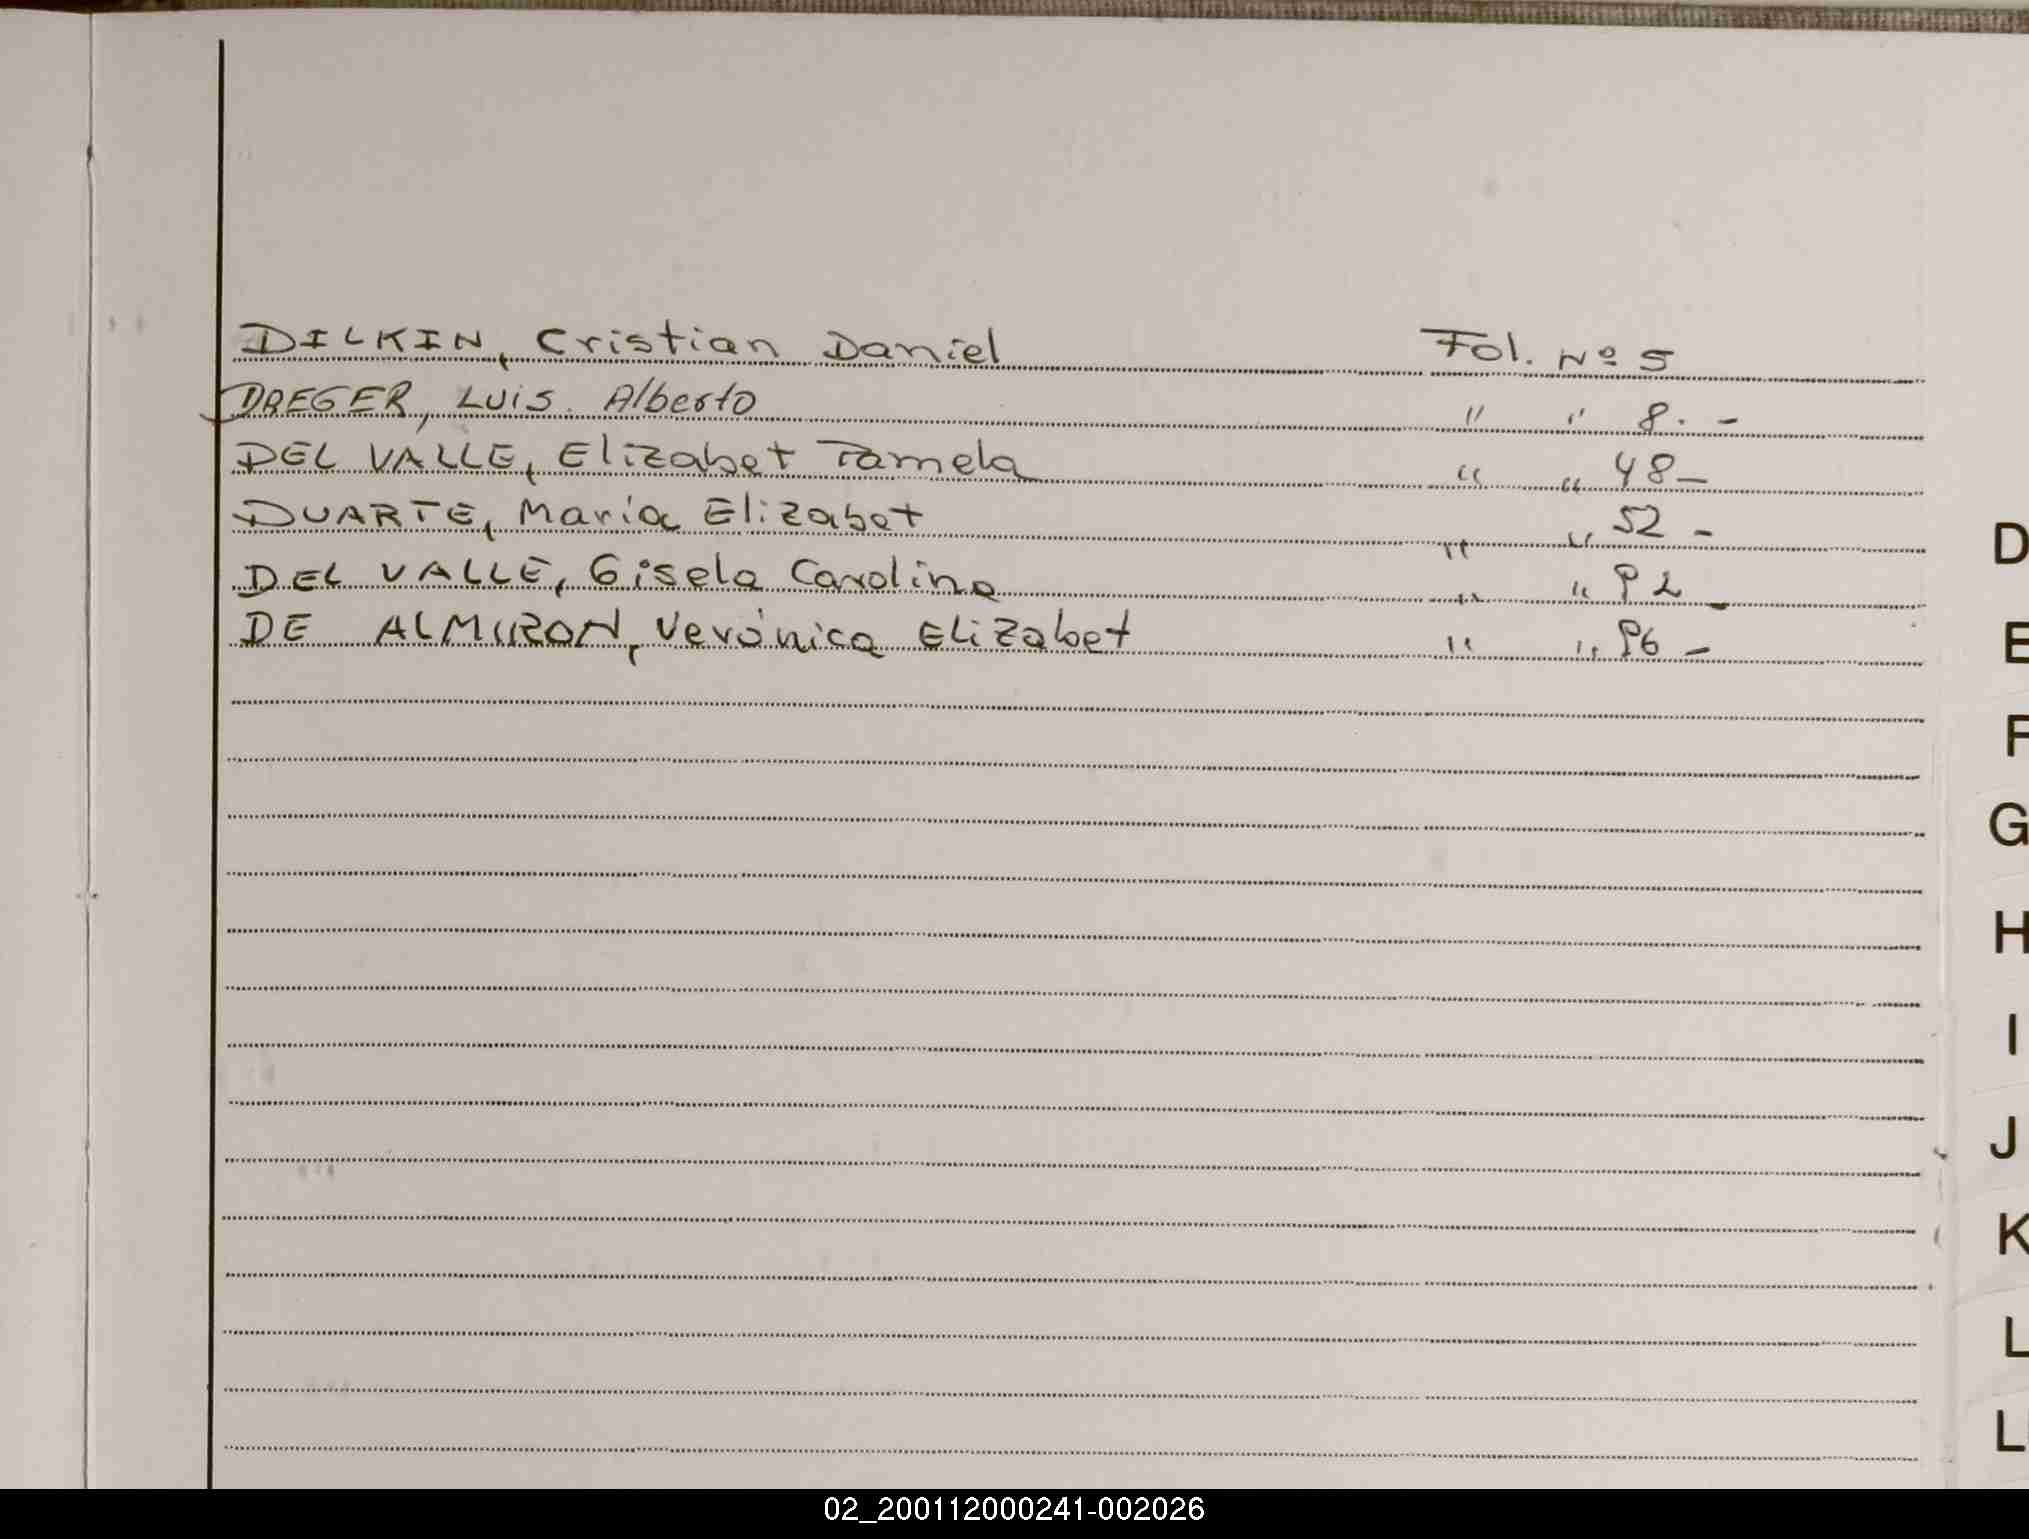 DILKIN, Cristian Daniel Fol. Nº 5
DREGER, Luis Alberto " " 8. -
DEL VALLE, Elizabet Pamela " " 48 -
DUARTE, María Elizabet " " 52 -
DEL VALLE, Gisela Carolina " " 92 -
DE ALMIRON, Verónica Elizabet " " 96 -
D
E
F
G
H
I
J
K
L
02_200112000241-002026